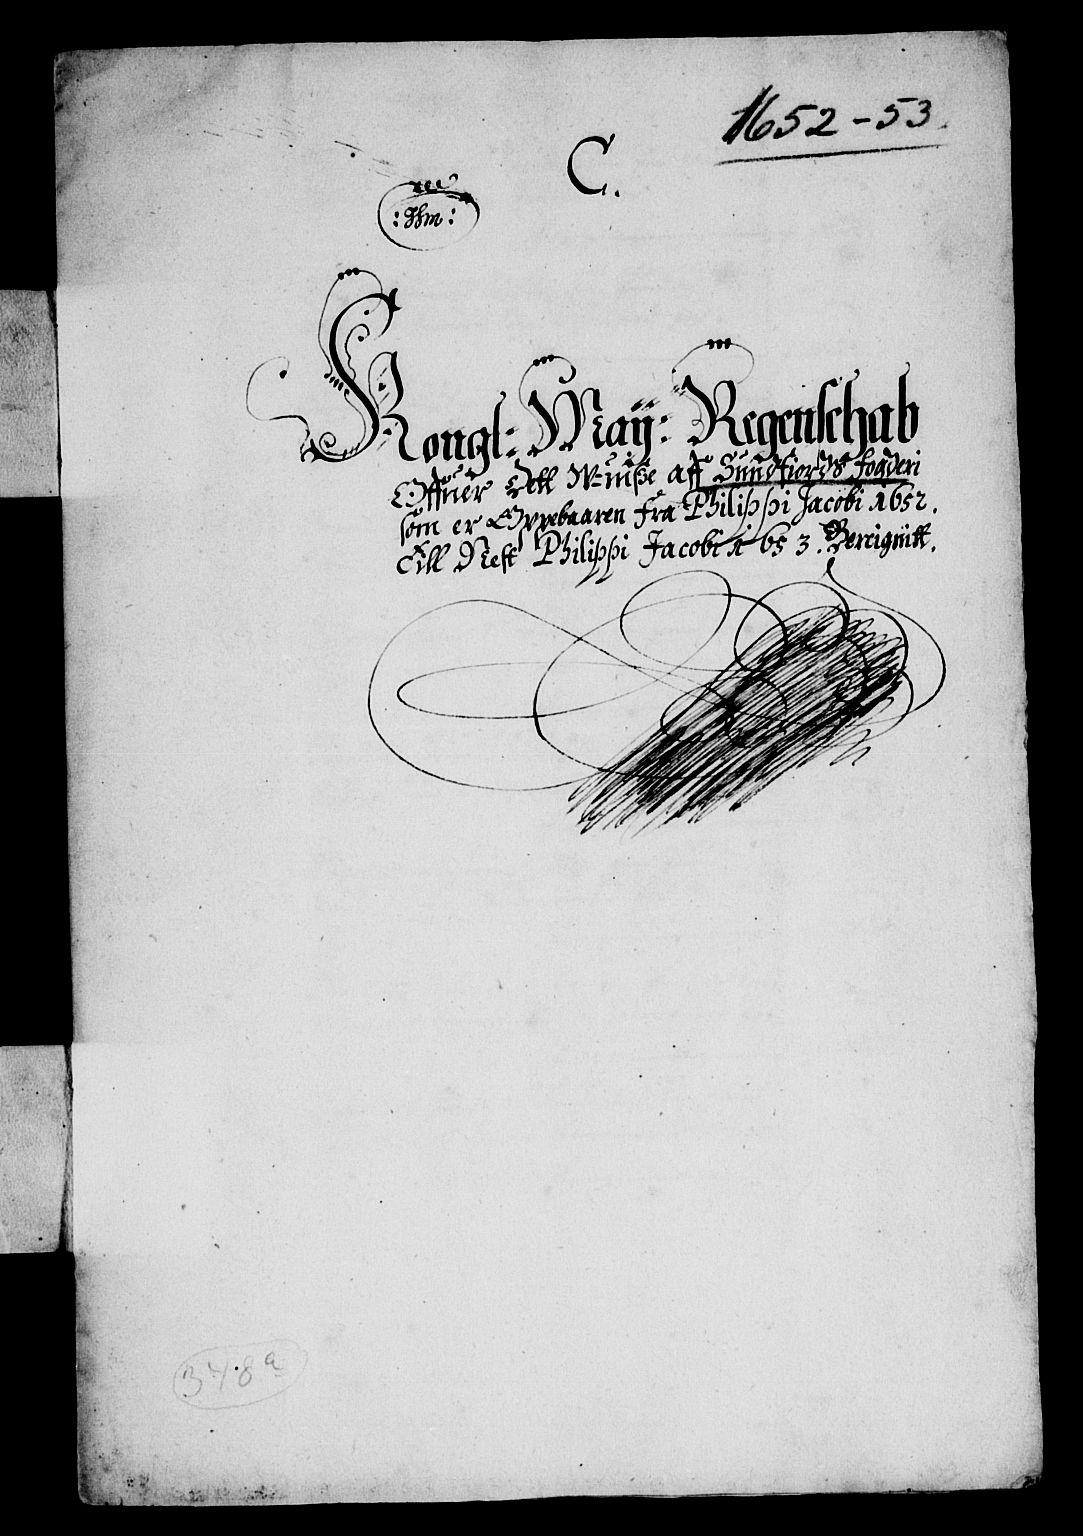 1652-53.
C.
Kongl: Maÿ: Regenschab
Offuer Tell Wuiße aff Sundfiords fogderi
som er Oppebaaren fra Philippi Jacobi 1652.
till Nest Philippi Jacobi 1653. Bereignitt.
348a